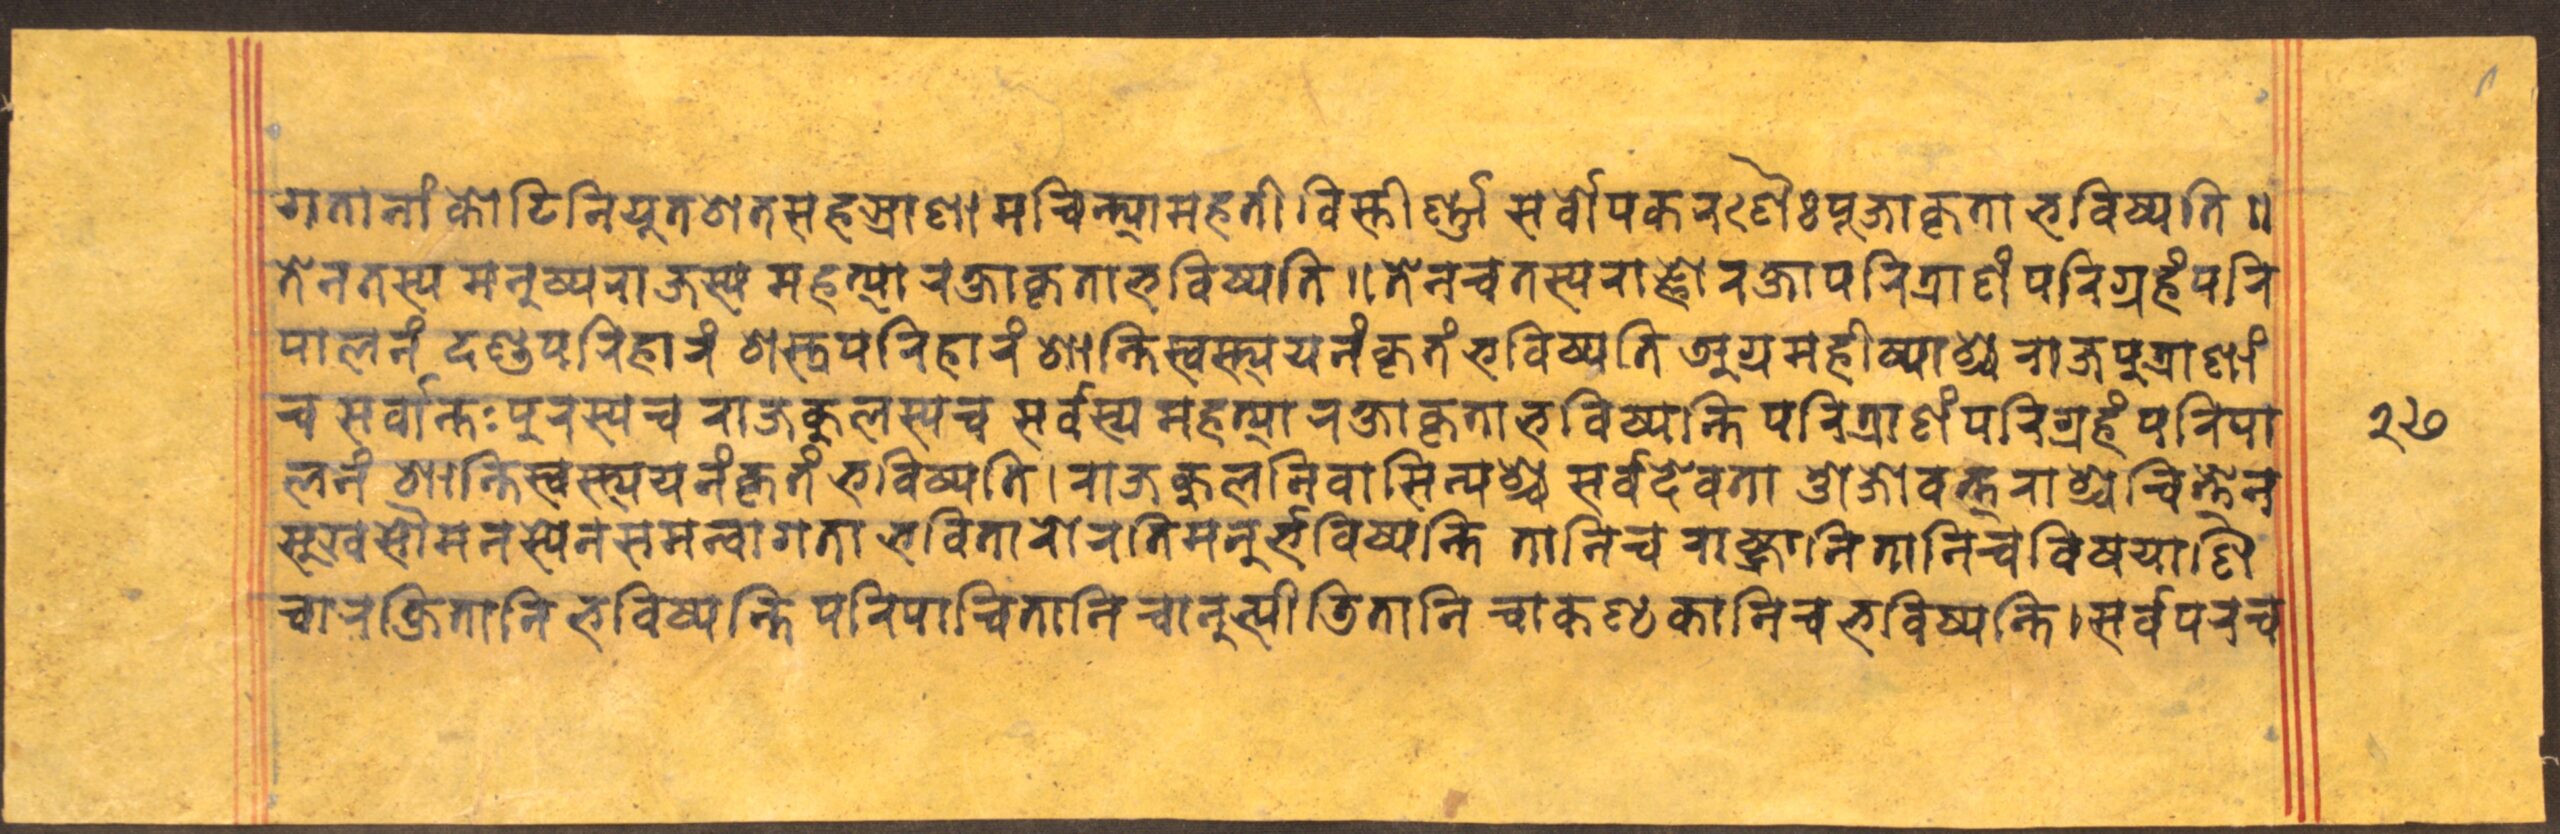 गतानां कोटिनियुतशतसहस्राणामचिन्त्यामहती। विस्तीर्ण्णा सर्वोपकरणैः पूजाकृता भविष्यति॥
तेनतस्य मनुष्यराजस्य महत्या रक्षाकृताभविष्यति॥ तेनचतस्यराज्ञो रक्षापरित्राणं परिग्रहं परि
पालनं दण्डपरिहारं शस्त्रपरिहारं शान्तिस्वस्त्ययनं कृतं भविष्यति अग्रमहीष्याश्च राजपुत्राणां
च सर्वान्तःपुरस्यच राजकुलस्यच सर्वस्य महत्या रक्षाकृता भविष्यन्ति परित्राणं परिग्रहं परिपा
लनं शान्तिस्वस्त्ययनं कृतं भविष्यति। राजकुलनिवासिन्यश्च सर्वदेवता ओजोवत्तराश्च चित्तेन
सुखसौमनस्येनसमन्वागता भवितारो रतिमनुर्भविष्यन्ति तानिच राष्ट्रानि तानिचविषयाणि
चारक्षितानि भविष्यन्ति परिपाचितानि चानुत्पीडितानि चाकण्ठकानिच भविष्यन्ति। सर्वपरच
२७